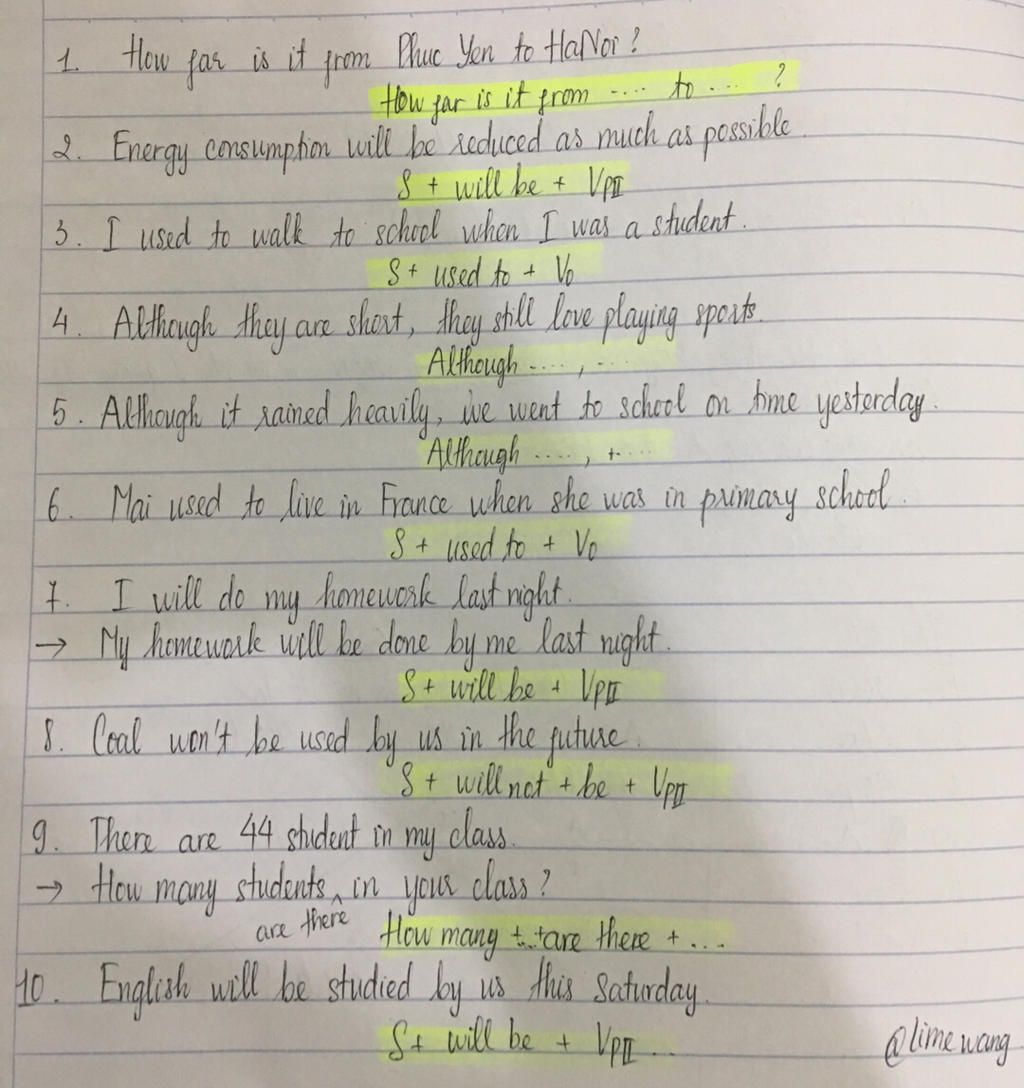 1. How far is it from Phuc Yen to HaNoi?
How far is it from .... to .... ?
2. Energy consumption will be reduced as much as possible.
S + will be + VpII
3. I used to walk to school when I was a student.
S + used to + V0
4. Although they are short, they still love playing sports.
Although ...., ....
5. Although it rained heavily, we went to school on time yesterday.
Although ...., + ....
6. Mai used to live in France when she was in primary school.
S + used to + V0
7. I will do my homework last night.
→ My homework will be done by me last night.
S + will be + VpII
8. Coal won't be used by us in the future.
S + will not + be + VpII
9. There are 44 student in my class.
→ How many students are there in your class?
How many +..+are there + ...
10. English will be studied by us this Saturday.
S + will be + VpII ...
@lime wang